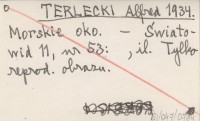 TERLECKI Alfred 1934.
Morskie oko. - Świato-
wid 11, nr 53: , il. Tylko
reprod. obrazu.